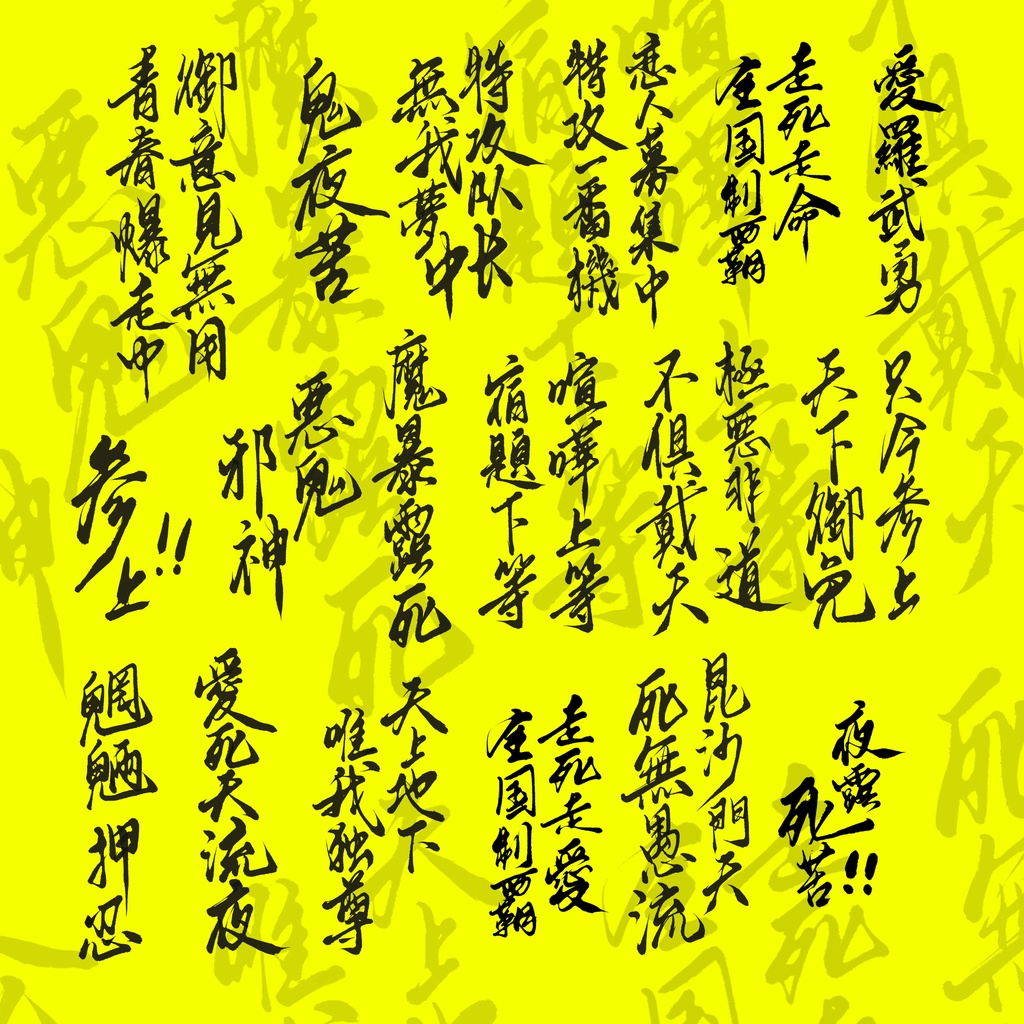 愛羅武勇
走死走命
全国制覇
恋人募集中
特攻一番機
特攻队长
無我夢中
鬼夜苦
御意見無用
青春爆走中
只今参上
天下御免
極悪非道
不倶戴天
喧嘩上等
宿題下等
魔暴露死
悪鬼
邪神
参上!!
夜露
死苦!!
毘沙門天
死無愚流
走死走愛
全国制覇
天上地下
唯我独尊
愛死天流夜
魍魎押忍